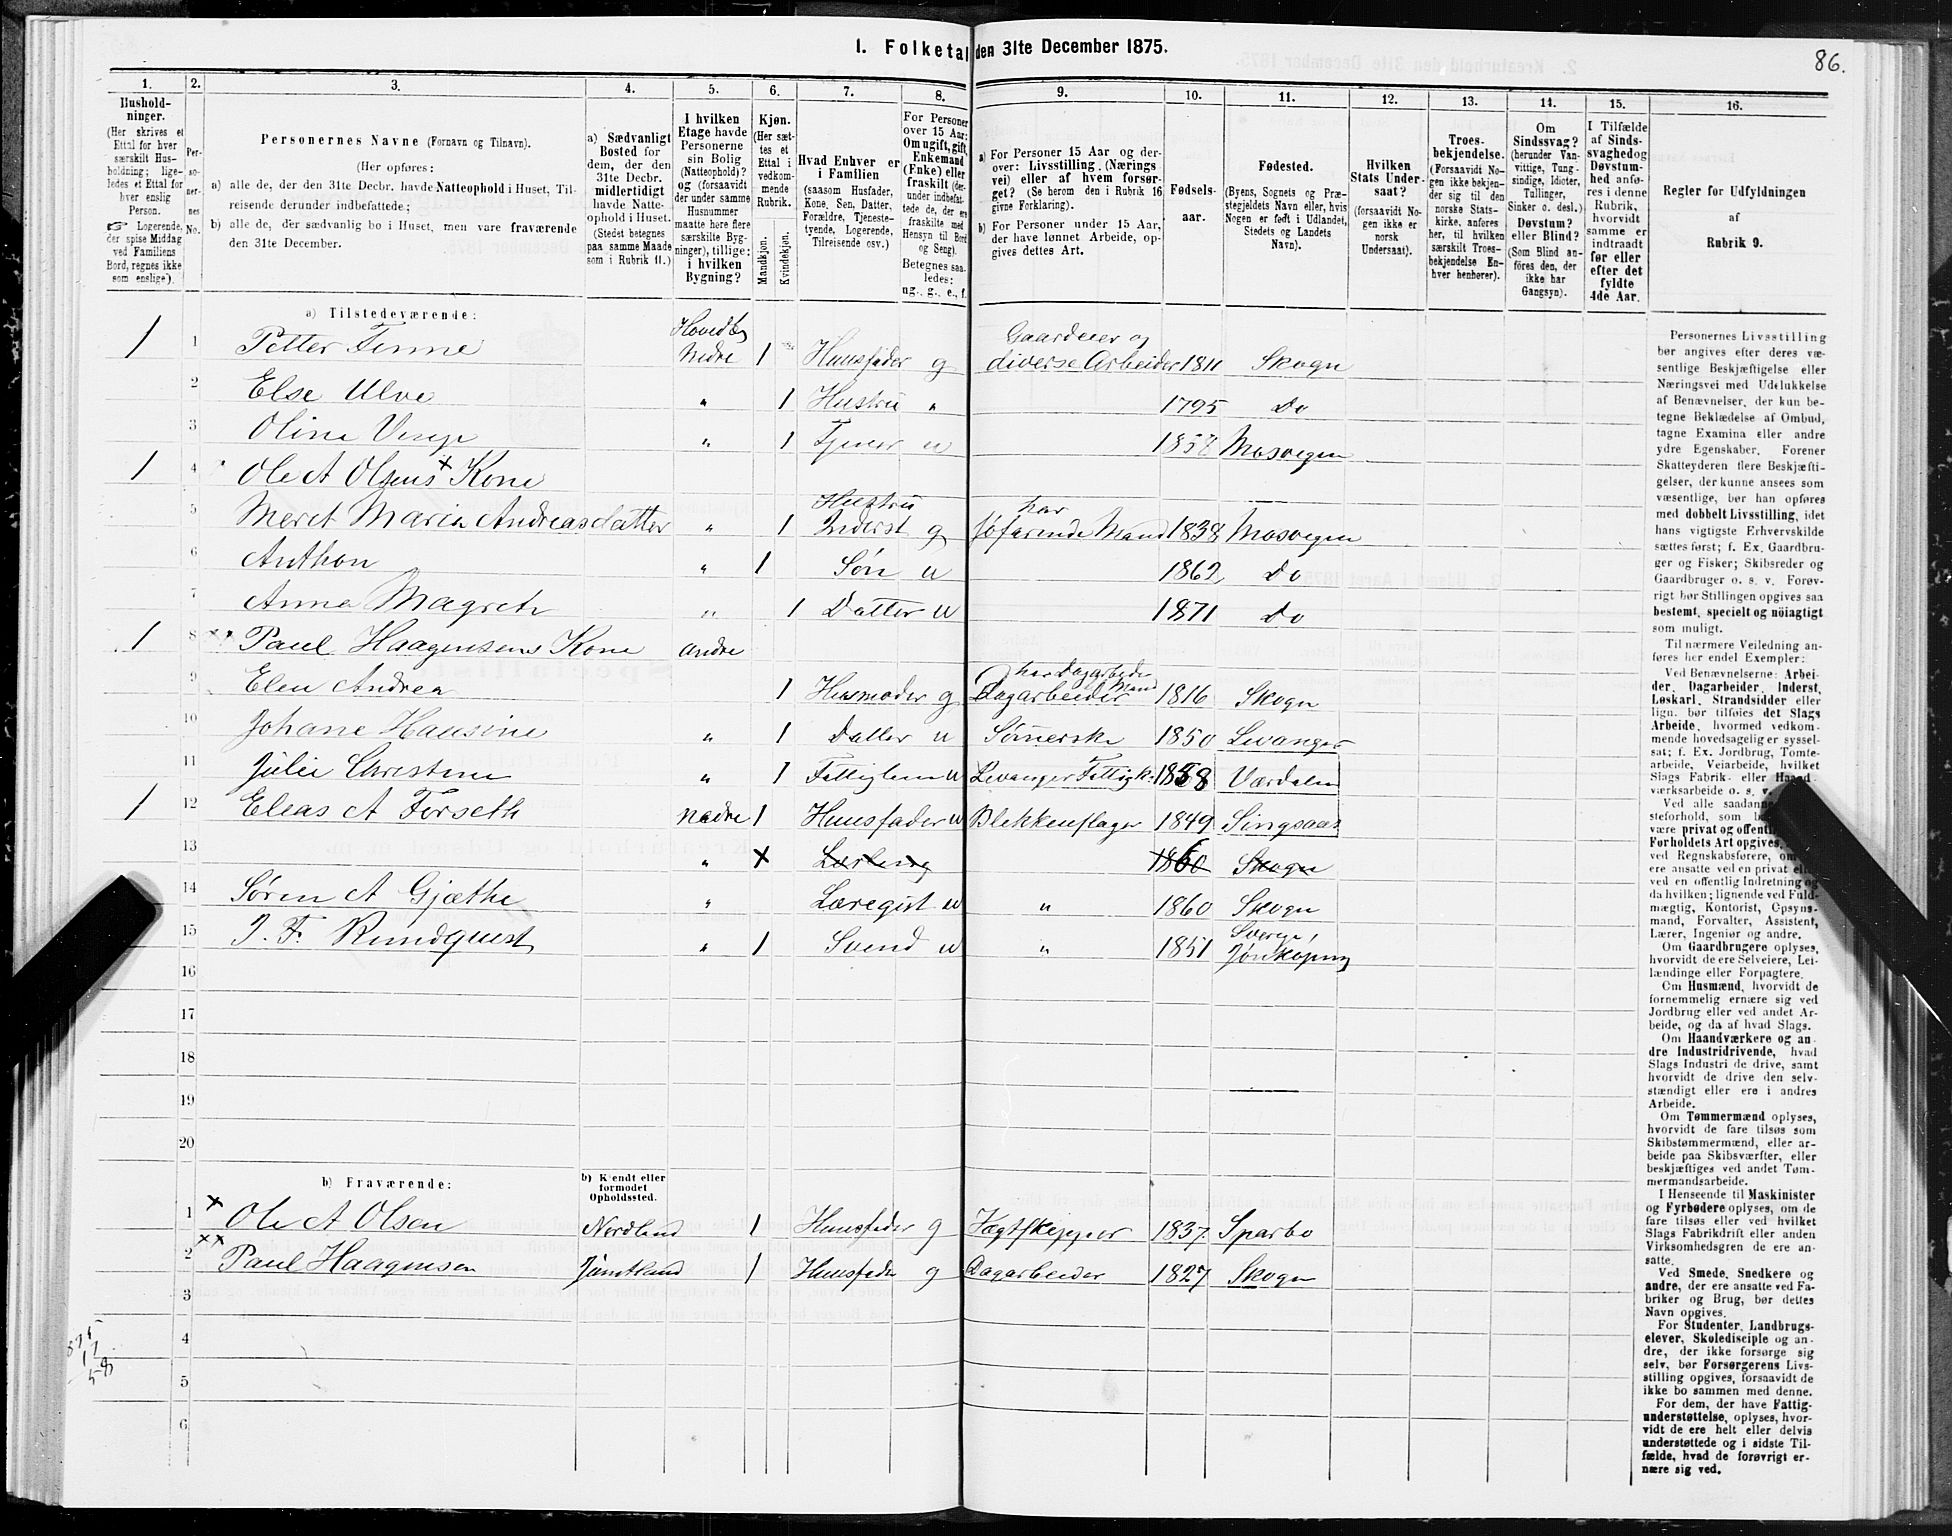 1. Folketal den 31te December 1875.
86.
1.
2.
3.
4.
5.
6.
7.
8.
9.
10.
11.
12.
13.
14.
15.
16.
Husholdninger.
(Her skrives et Ettal for hver særskilt Husholdning; ligeledes et Ettal for hver enslig Person.
☞ Logerende, der spise Middag ved Familiens Bord, regnes ikke som enslige).
Personernes No.
Personernes Navne (Fornavn og Tilnavn).
(Her opføres:
a) alle de, der den 31te Decbr. havde Natteophold i Huset, Tilreisende derunder indbefattede;
b) alle de, der sædvanlig bo i Huset, men vare fraværende den 31te December.
a) Sædvanligt Bosted for dem, der den 31te Decbr. midlertidigt havde Natteophold i Huset. (Stedet betegnes paa samme Maade som i Rubrik 11.)
I hvilken Etage havde Personerne sin Bolig (Natteophold)? og (forsaavidt der under samme Husnummer maatte høre flere særskilte Bygninger), tillige: i hvilken Bygning?
Kjøn.
(Her sættes et Ettal i vedkommende Rubrik.
Mandkjøn.
Kvindekjøn.
Hvad Enhver er i Familien
(saasom Husfader, Kone, Søn, Datter, Forældre, Tjenestetyende, Logerende, Tilreisende osv.)
For Personer over 15 Aar: Om ugift, gift, Enkemand (Enke) eller fraskilt (derunder indbefattede de, der ere fraskilte med Hensyn til Bord og Seng).
Betegnes saaledes: ug., g., e., f.
a) For Personer 15 Aar og derover: Livsstilling (Næringsvei) eller af hvem forsørget? (Se herom den i Rubrik 16 givne Forklaring).
b) For Personer under 15 Aar, der have lønnet Arbeide, opgives dettes Art.
Fødselsaar.
Fødested.
(Byens, Sognets og Præstegjeldets Navn eller, hvis Nogen er født i Udlandet, Stedets og Landets Navn).
Hvilken Stats Undersaat?
(forsaavidt Nogen ikke er norsk Undersaat).
Troesbekjendelse.
(Forsaavidt Nogen ikke bekjender sig til den norske Statskirke, anføres her, til hvilken særskilt Troesbekjendelse Enhver henhører).
Om Sindssvag? (herunder Vanvittige, Tungsindige, Idioter, Tullinger, Sinker o. desl.) Døvstum? eller Blind? (Som Blind anføres den, der ikke har Gangsyn).
I Tilfælde af Sindssvaghed og Døvstumhed anføres i denne Rubrik, hvorvidt samme er indtraadt før eller efter det fyldte 4de Aar.
Regler for Udfyldningen af Rubrik 9.
a) Tilstedeværende:
1 1 Petter Finne Hovedb Nedre 1 Huusfader g Gaardeier og diverse Arbeider 1811 Skogn
2 Else Ulve " 1 Hustru " 1795 Do
3 Oline " 1 Tjener u 1858 Mosvigen
1 4 Ole A Olsens x Kone
5 Meret Maria Andreasdatter " 1 Hustru Inderst g har søfarende Mand 1838 Mosvigen
6 Anthon " 1 Søn u 1862 Do
7 Anna Magreth " 1 Datter u 1871 Do
1 8 xx Paul Haagensens Kone andre
9 Elen Andrea 1 Husmoder g har Dagarbeider Mand Dagarbeider 1816 Skogn
10 Johane Hansine " 1 Datter u Sømerske 1850 Levanger
11 Julie Christine " 1 Fattiglem u Levanger Fattigk. 1858 Værdalen
1 12 Eleas A Forseth nedre 1 Huusfader u Blikkenslager 1849 Singsaas
13 " x Lærling 1860 Skogn
14 Søren A Gjæthe " Læregut u " 1860 Skogn
15 J. F. Rundquest " 1 Svend u " 1851 Sverige, Jønkøping
16
17
18
19
20
b) Fraværende:
b) Kjendt eller formodet Opholdssted.
x 1 Ole A Olsen Nordland 1 Huusfader g Jægtskipper 1837 Sparbo
xx 2 Paul Haagensen Jæmtland 1 Huusfader g Dagarbeider 1827 Skogn
3
4
5
6
Personernes Livsstilling
bør angives efter deres væ-
sentlige Beskjæftigelse eller
Næringsvei med Udelukkelse
af Benævnelser, der kun be-
tegne Beklædelse af Ombud,
tagne Examina eller andre
ydre Egenskaber. Forener
Skatteyderen flere Beskjæfti-
gelser, der kunne ansees som
væsentlige, bør han opføres
med dobbelt Livsstilling, idet
hans vigtigste Erhvervskilde
sættes først; f. Ex. Gaardbru-
ger og Fisker; Skibsreder og
Gaardbruger o. s. v. Forøv-
rigt bør Stillingen opgives saa
bestemt, specielt og nöiagtigt
som muligt.
Til nærmere Veiledning an-
føres her endel Exempler:
Ved Benævnelserne: Arbei-
der, Dagarbeider, Inderst,
Løskarl, Strandsidder eller
lign. bør tilføies det Slags
Arbeide, hvormed vedkom-
mende hovedsagelig er syssel-
sat; f. Ex. Jordbrug, Tomte-
arbeide, Veiarbeide, hvilket
Slags Fabrik- eller Haand-
værksarbeide o. s. v.
Ved alle saadanne
steforhold, som
være privat og offentlig
Forholdets Art opgives,
ved Regnskabsførere, om
ere ansatte ved en privat eller
ved en offentlig Indretning og
da hvilken; lignende ved Fuld-
mægtig, Kontorist, Opsyns-
mand, Forvalter, Assistent,
Lærer, Ingeniør og andre.
Om Gaardbrugere oplyses,
hvorvidt de ere Selveiere, Lei-
lændinge eller Forpagtere.
Om Husmænd, hvorvidt de
fornemmelig ernære sig ved
Jordbrug eller ved andet Ar-
beide, og da af hvad Slags.
Om Haandværkere og an-
dre Industridrivende, hvad
Slags Industri de drive, samt
hvorvidt de drive den selv-
stændigt eller ere i andres
Arbeide.
Om Tømmermænd oplyses,
hvorvidt de fare tilsøs som
Skibstømmermænd, eller ar-
beide paa Skibsværfter, eller
beskjæftiges ved andet Tøm-
mermandsarbeide.
I Henseende til Maskinister
og Fyrbødere oplyses, om de
fare tilsøs eller ved hvilket
Slags Fabrikdrift eller anden
Virksomhedsgren de ere an-
satte.
Ved Smede, Snedkere og
andre, der ere ansatte ved Fa-
briker og Brug, bør dettes
Navn opgives.
For Studenter, Landbrugs-
elever, Skoledisciple og an-
dre, der ikke forsørge sig
selv, bør Forsørgerens Livs-
stilling opgives, forsaavidt de
ikke bo sammen med denne.
For dem, der have Fattig-
understøttelse, oplyses, hvor-
vidt de ere helt eller delvis
understøttede og i sidste Til-
fælde, hvad de forøvrigt er-
nære sig ved.